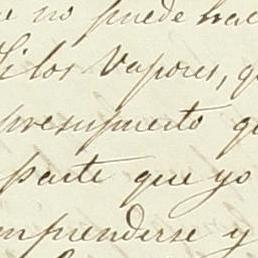 no puede hac
Si los Vapores, q
presupuesto qu
parte que yo
mprenderse y